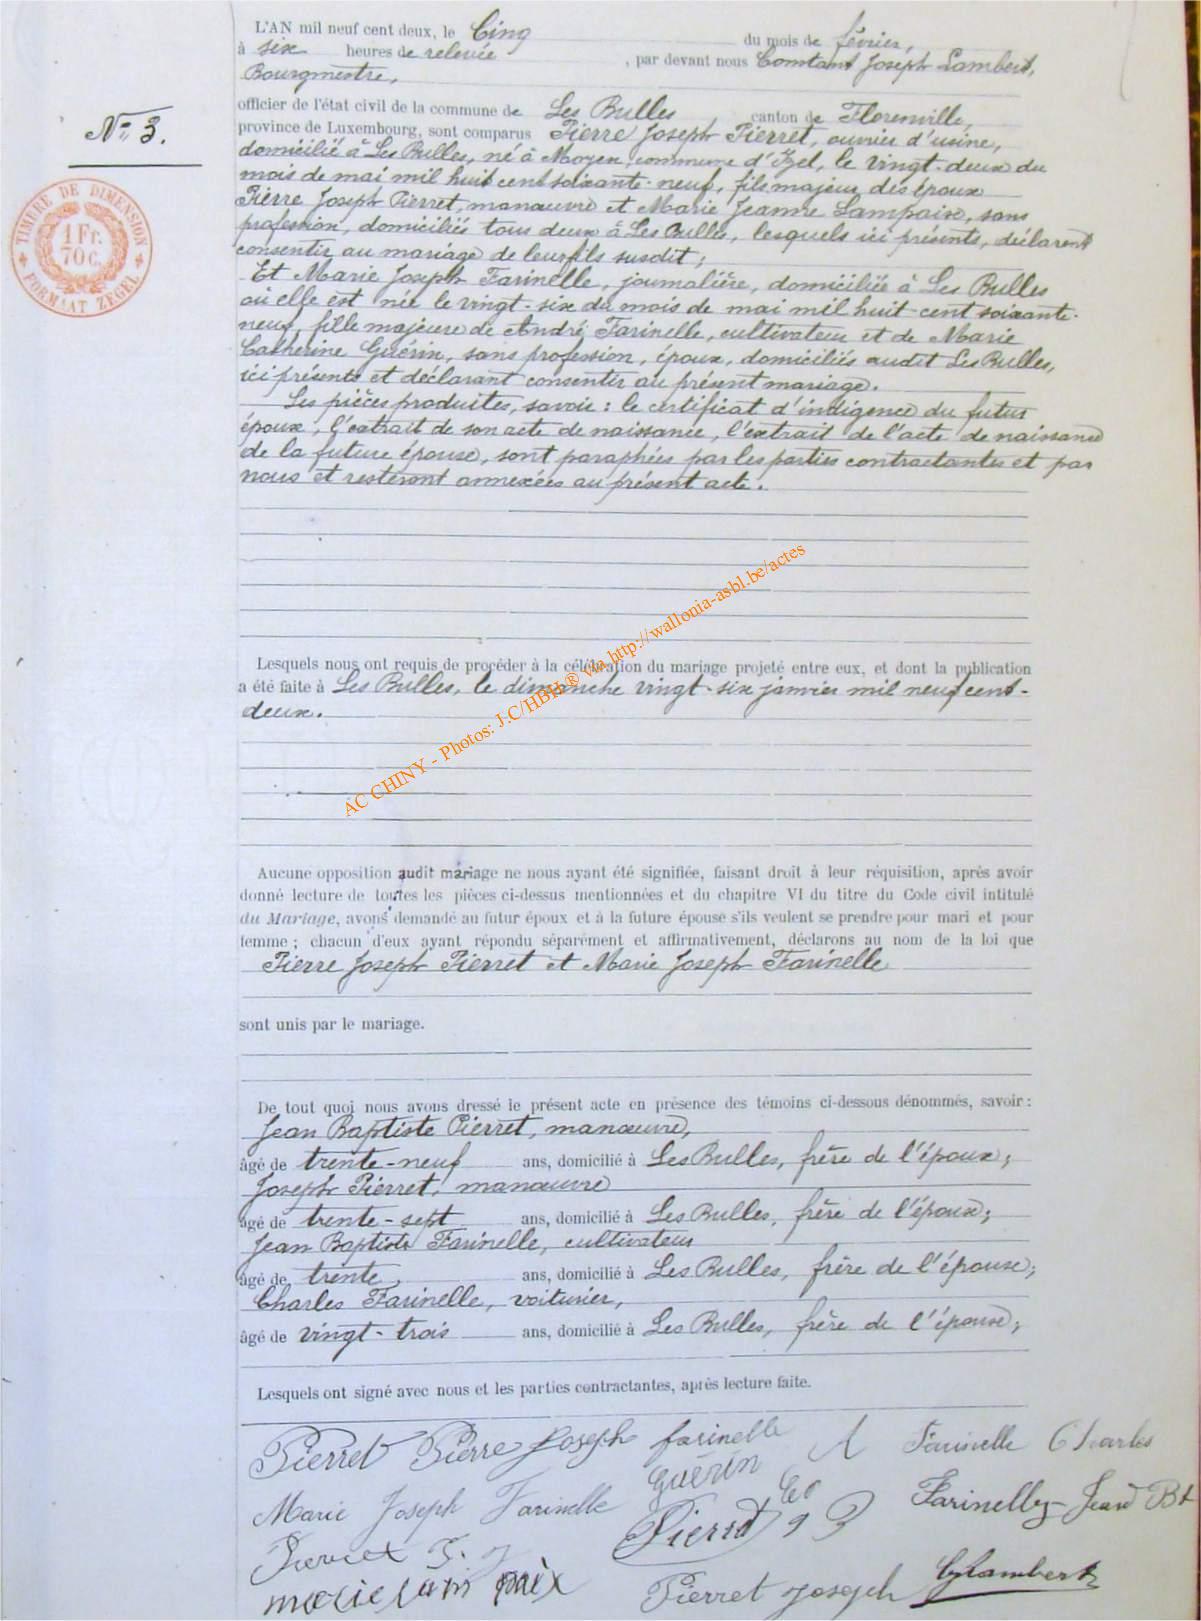 L'AN mil neuf cent deux, le Cinq du mois de février,
à six heures de relevée, par devant nous Constant Joseph Lambert,
Bourgmestre,
officier de l'état civil de la commune de Les Bulles canton de Florenville,
province de Luxembourg, sont comparus Pierre Joseph Pierret, ouvrier d'usine,
domicilié à Les Bulles, né à Moyen, commune d'Izel, le vingt-deux du
mois de mai mil huit cent soixante-neuf, fils majeur des époux
Pierre Joseph Pierret, manœuvre et Marie Jeanne Lampaix, sans
profession, domiciliés tous deux à Les Bulles, lesquels ici présents, déclarent
consentir au mariage de leur fils susdit;
Et Marie Joseph Farinelle, journalière, domiciliée à Les Bulles
où elle est née le vingt-six du mois de mai mil huit-cent soixante-
neuf, fille majeure de André Farinelle, cultivateur et de Marie
Catherine Guérin, sans profession, époux, domiciliés audit Les Bulles,
ici présents et déclarant consentir au présent mariage.
Les pièces produites, savoir : le certificat d'indigence du futur
époux, l'extrait de son acte de naissance, l'extrait de l'acte de naissance
de la future épouse, sont paraphées par les parties contractantes et par
nous et resteront annexées au présent acte.
N° 3.
TIMBRE DE DIMENSION
1 Fr.
70 C.
FORMAAT ZEGEL
Lesquels nous ont requis de procéder à la célébration du mariage projeté entre eux, et dont la publication
a été faite à Les Bulles, le dimanche vingt-six janvier mil neuf cent-
deux.
AC CHINY - Photos: J.C/HBH ® via http://wallonia-asbl.be/actes
Aucune opposition audit mariage ne nous ayant été signifiée, faisant droit à leur réquisition, après avoir
donné lecture de toutes les pièces ci-dessus mentionnées et du chapitre VI du titre du Code civil intitulé
du Mariage, avons demandé au futur époux et à la future épouse s'ils veulent se prendre pour mari et pour
femme ; chacun d'eux ayant répondu séparément et affirmativement, déclarons au nom de la loi que
Pierre Joseph Pierret et Marie Joseph Farinelle
sont unis par le mariage.
De tout quoi nous avons dressé le présent acte en présence des témoins ci-dessous dénommés, savoir :
Jean Baptiste Pierret, manœuvre,
âgé de trente-neuf ans, domicilié à Les Bulles, frère de l'époux;
Joseph Pierret, manœuvre
âgé de trente-sept ans, domicilié à Les Bulles, frère de l'époux;
Jean Baptiste Farinelle, cultivateur
âgé de trente, ans, domicilié à Les Bulles, frère de l'épouse;
Charles Farinelle, voiturier,
âgé de vingt-trois ans, domicilié à Les Bulles, frère de l'épouse;
Lesquels ont signé avec nous et les parties contractantes, après lecture faite.
Pierret Pierre Joseph farinelle A Farinelle Charles
Marie Joseph Farinelle Guérin Farinelle Jean Bt
Pierret
marie lampaix Pierret Joseph CJLambert